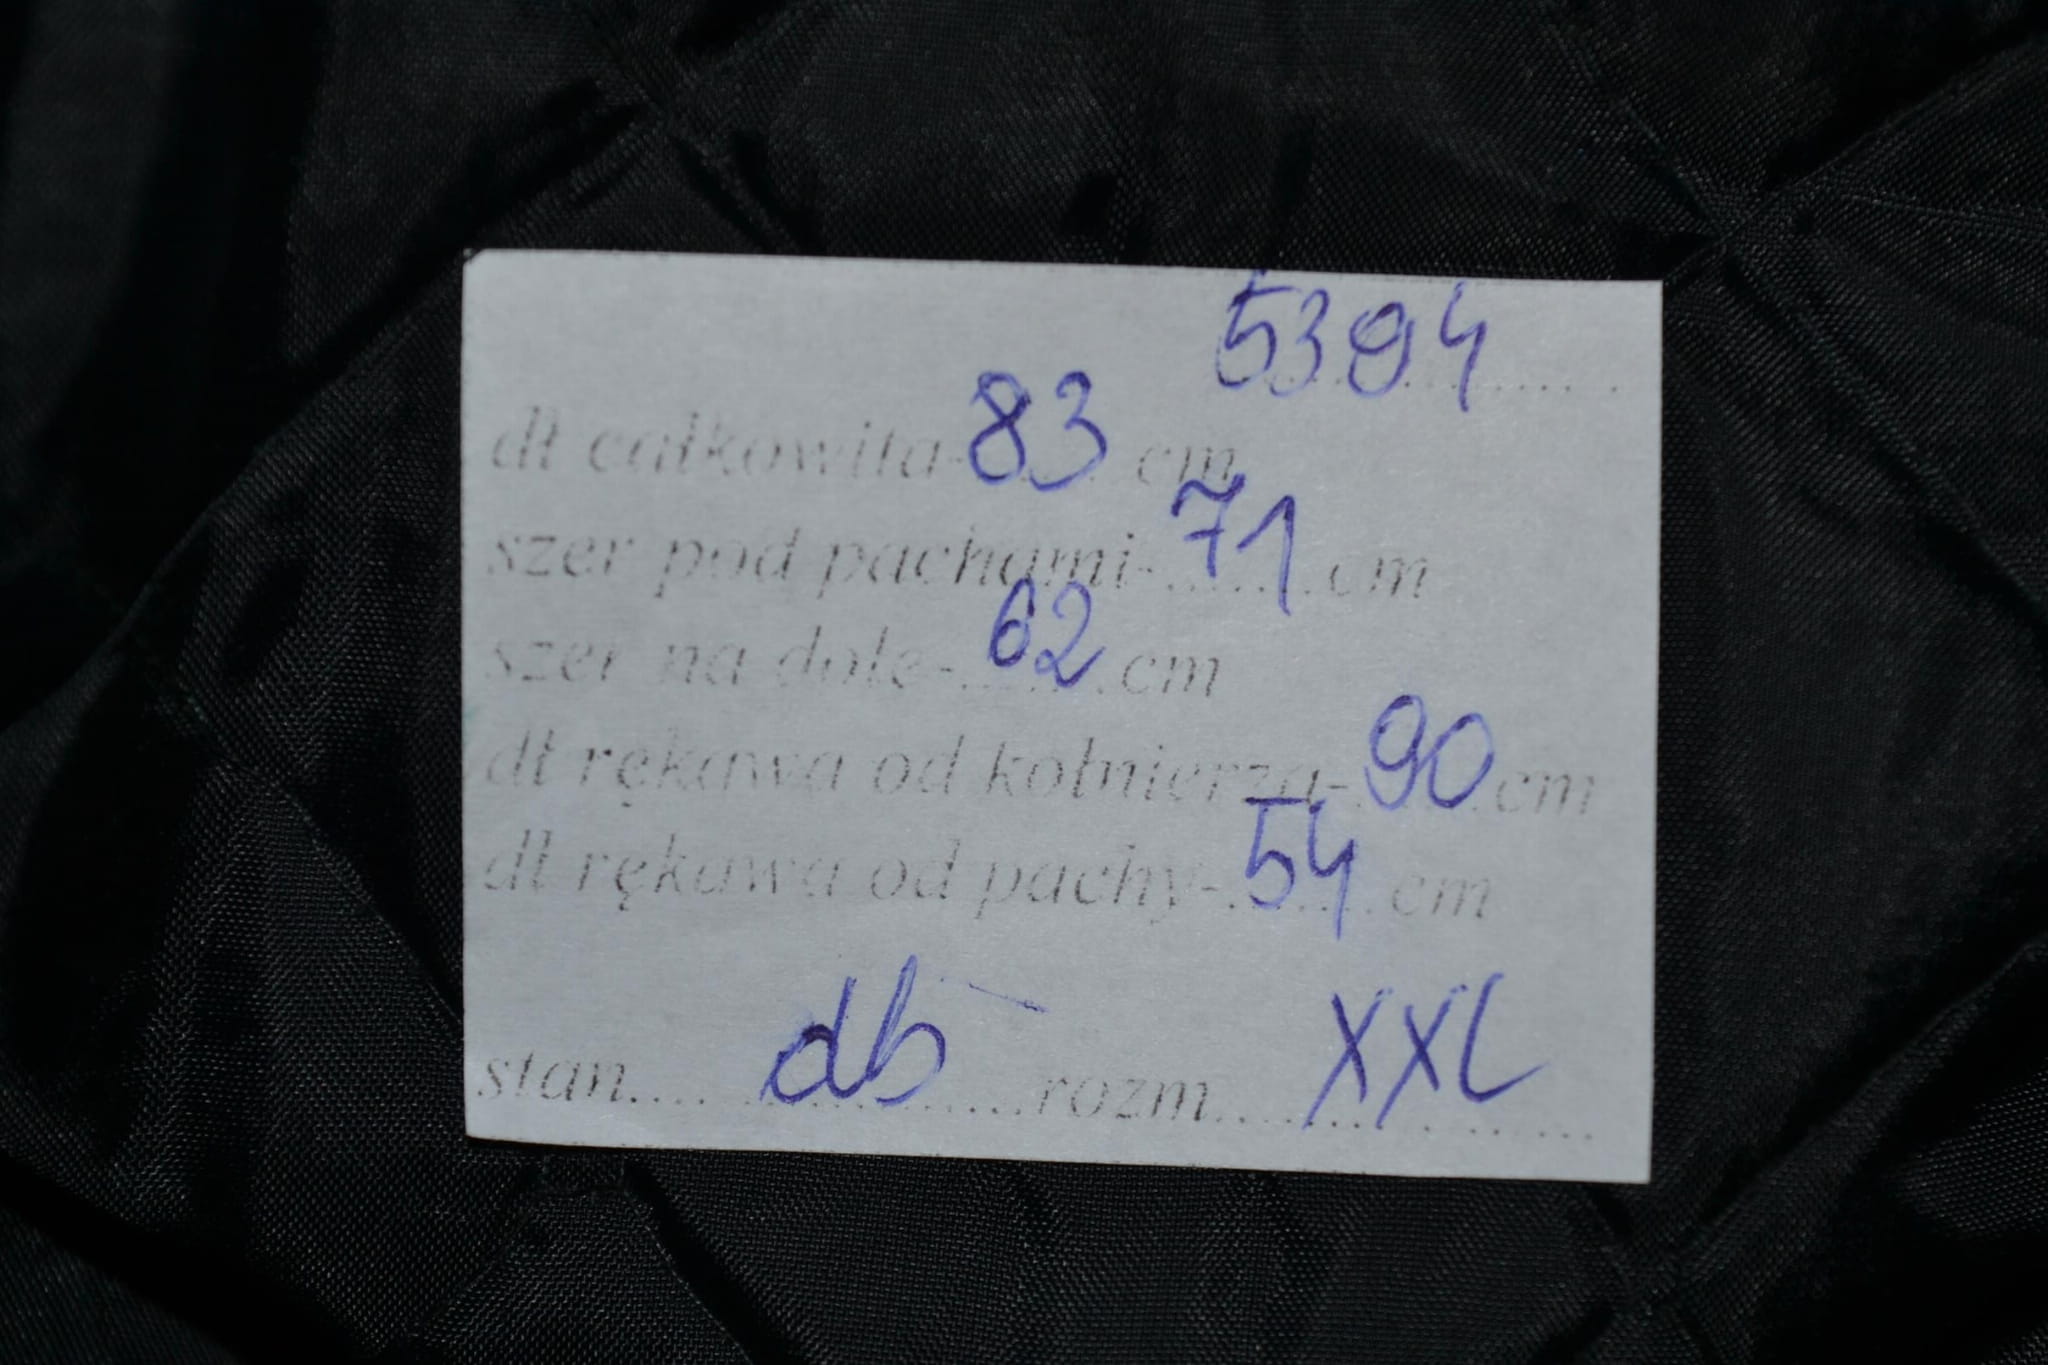 5394
dł całkowita-83cm
szer pod pachami-71......cm
szer na dole-62cm
dł rękawa od kołnierza-90cm
dł rękawa od pachy-54cm
stan....db....rozm....XXL....